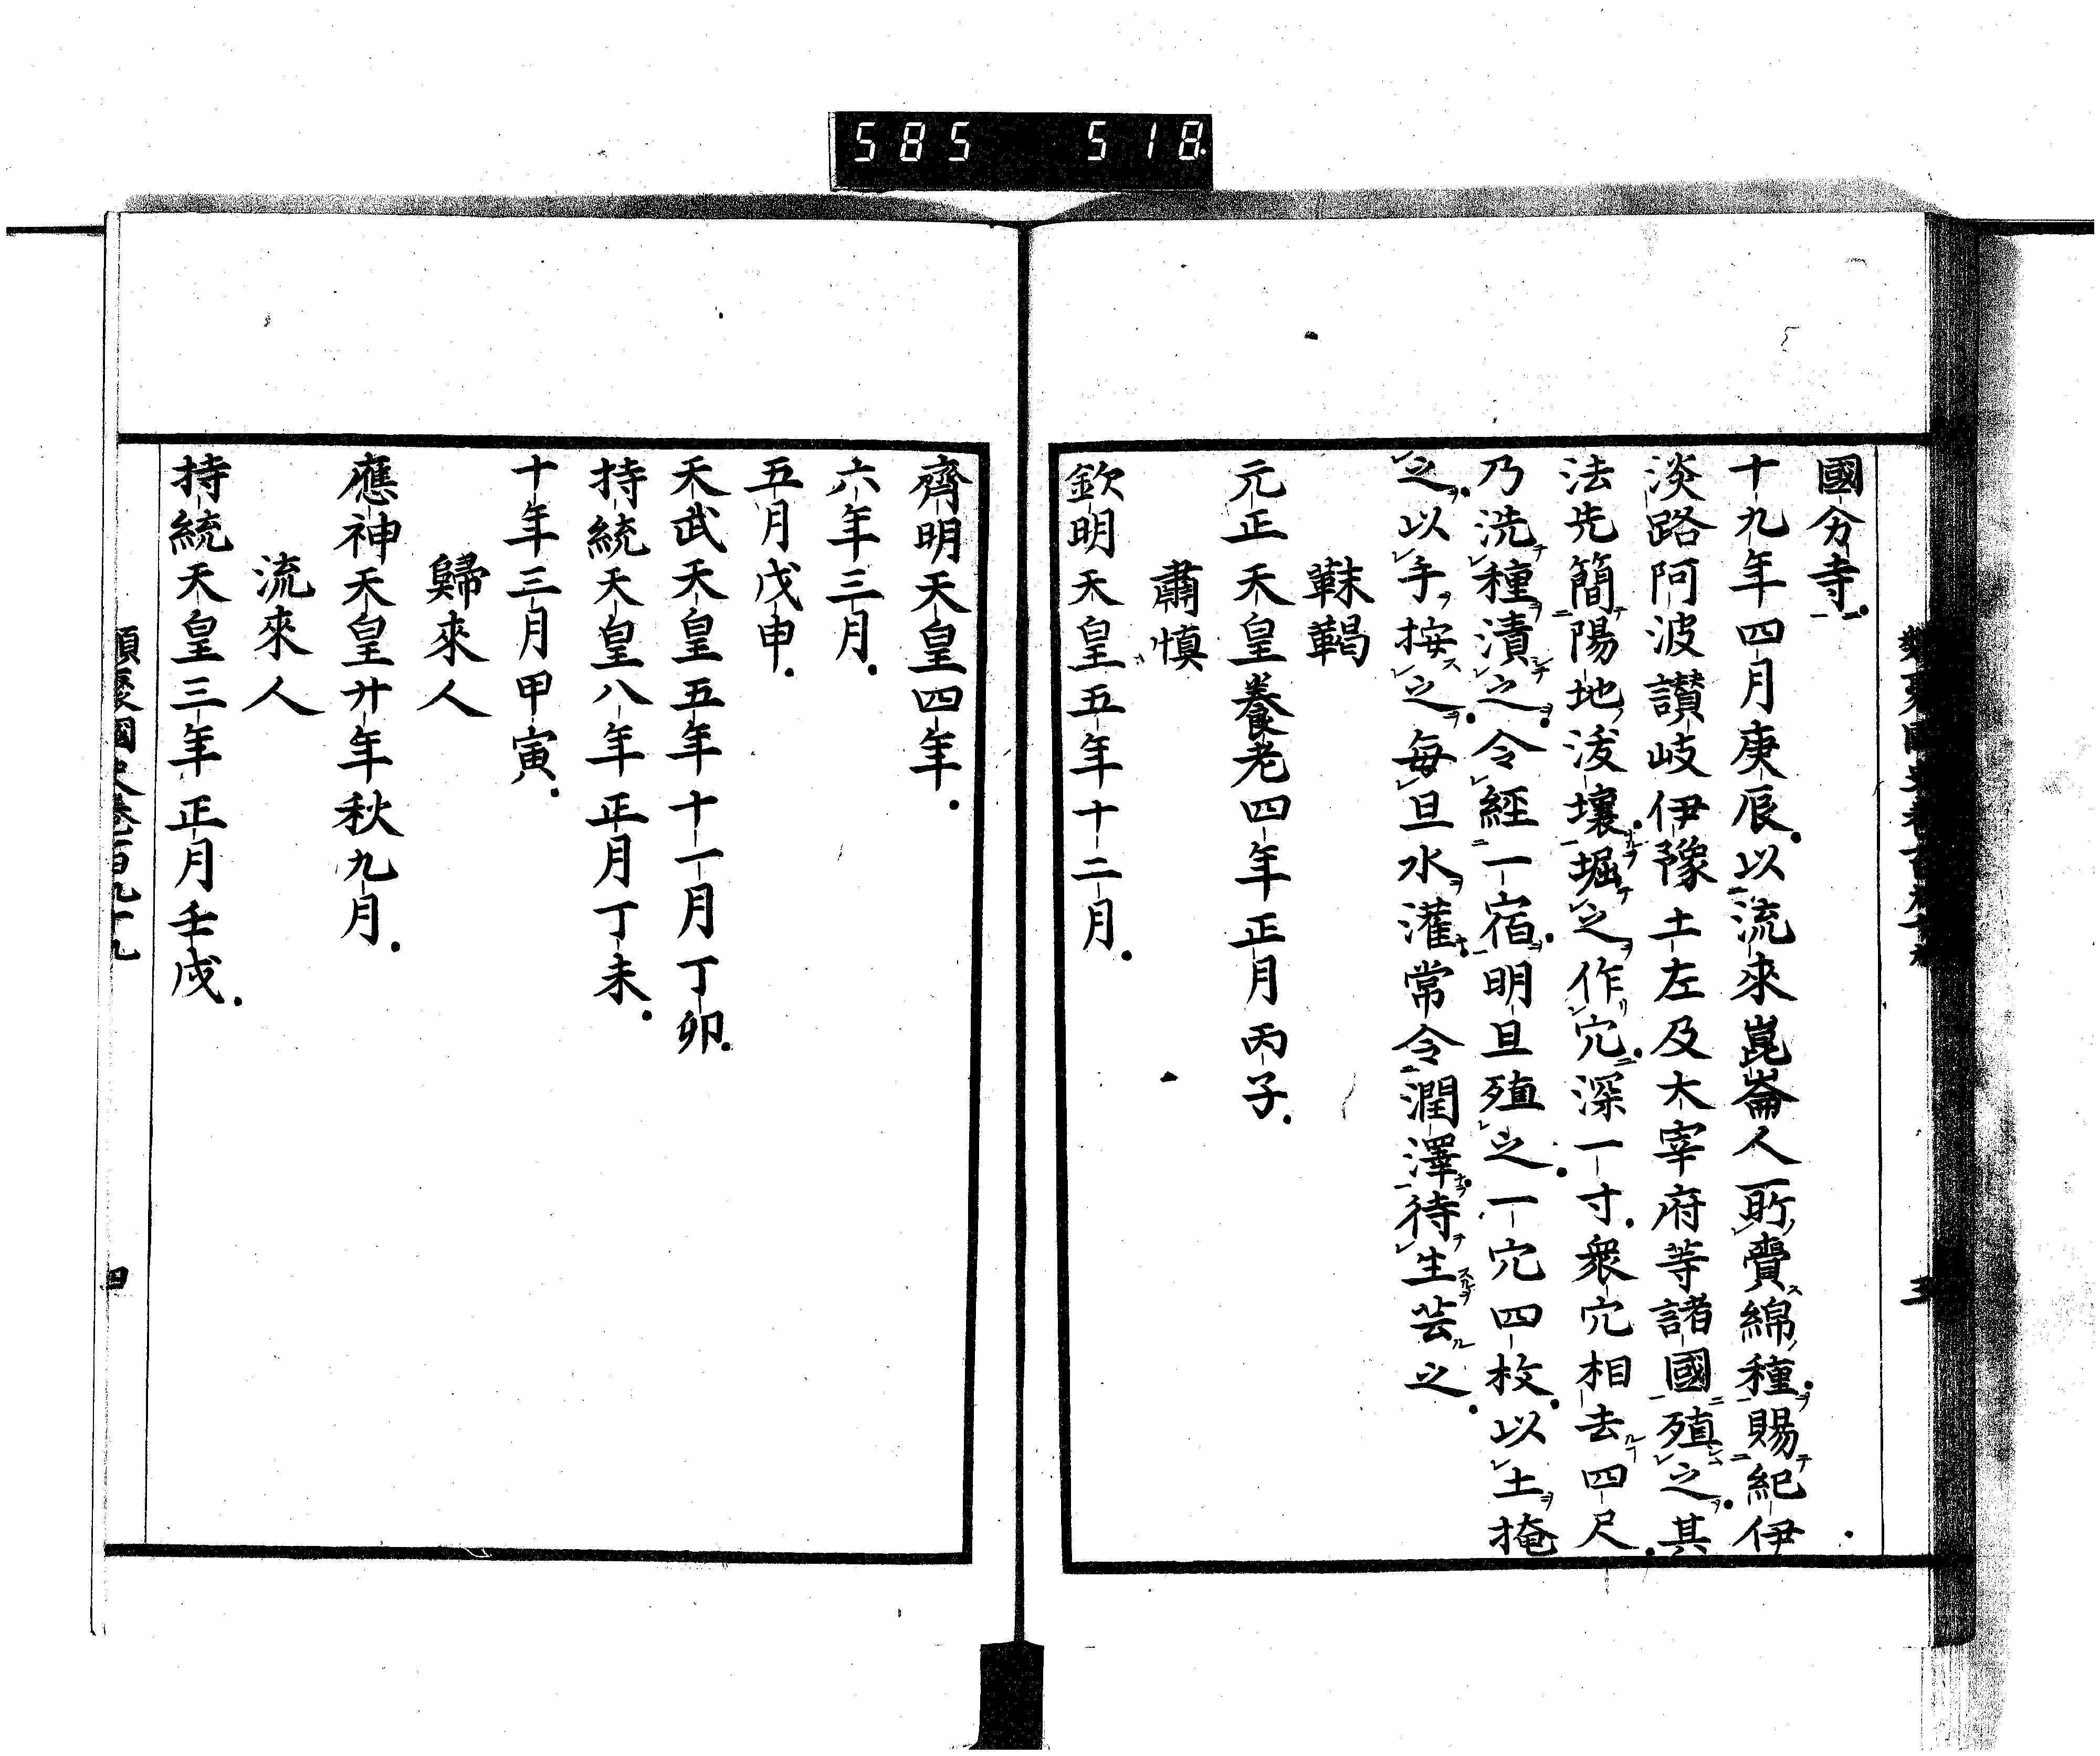 585 518
國分寺
十九年四月庚辰以流來崑崙人所賷綿種賜紀伊
淡路阿波讃岐伊豫土左及大宰府等諸國殖之其
法先簡陽地沃壤堀之作穴深一寸衆穴相去四尺
乃洗種漬之令經一宿明旦殖之一穴四枚以土掩
之以手按之毎旦水灌常令潤澤待生芸之
靺鞨
元正天皇養老四年正月丙子
肅慎
欽明天皇五年十二月
齊明天皇四年
六年三月
五月戊申
天武天皇五年十一月丁卯
持統天皇八年正月丁未
十年三月甲寅
歸來人
應神天皇廿年秋九月
流來人
持統天皇三年正月壬戌
類聚國史卷百九十九
四